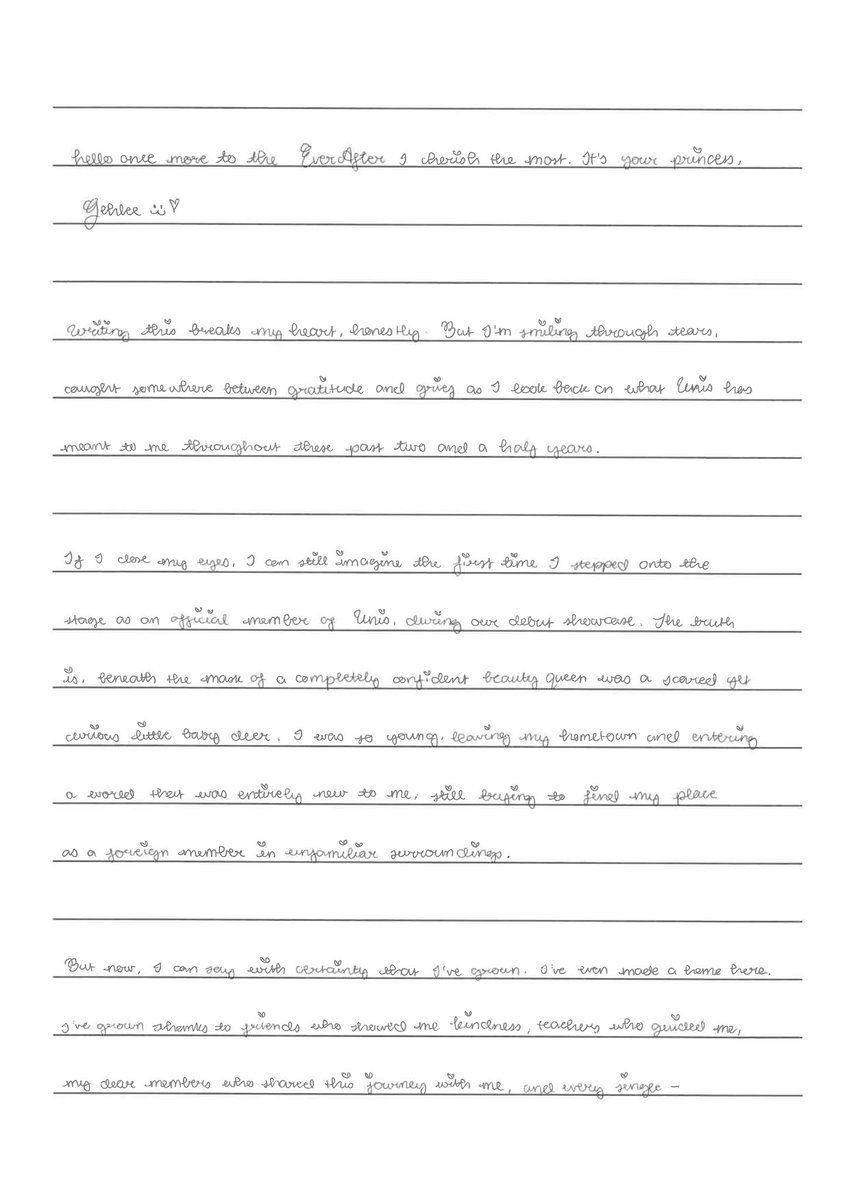 hello once more to the EverAfter I cherish the most. It's your princess,
Gehlee :) ♡
Writing this breaks my heart, honestly. But I'm smiling through tears,
caught somewhere between gratitude and grief as I look back on what Unis has
meant to me throughout these past two and a half years.
If I close my eyes, I can still imagine the first time I stepped onto the
stage as an official member of Unis, during our debut showcase. The truth
is, beneath the mask of a completely confident beauty queen was a scared yet
curious little baby deer. I was so young, leaving my hometown and entering
a world that was entirely new to me, still trying to find my place
as a foreign member in unfamiliar surroundings.
But now, I can say with certainty that I've grown. I've even made a home here.
I've grown thanks to friends who showed me kindness, teachers who guided me,
my dear members who shared this journey with me, and every single –